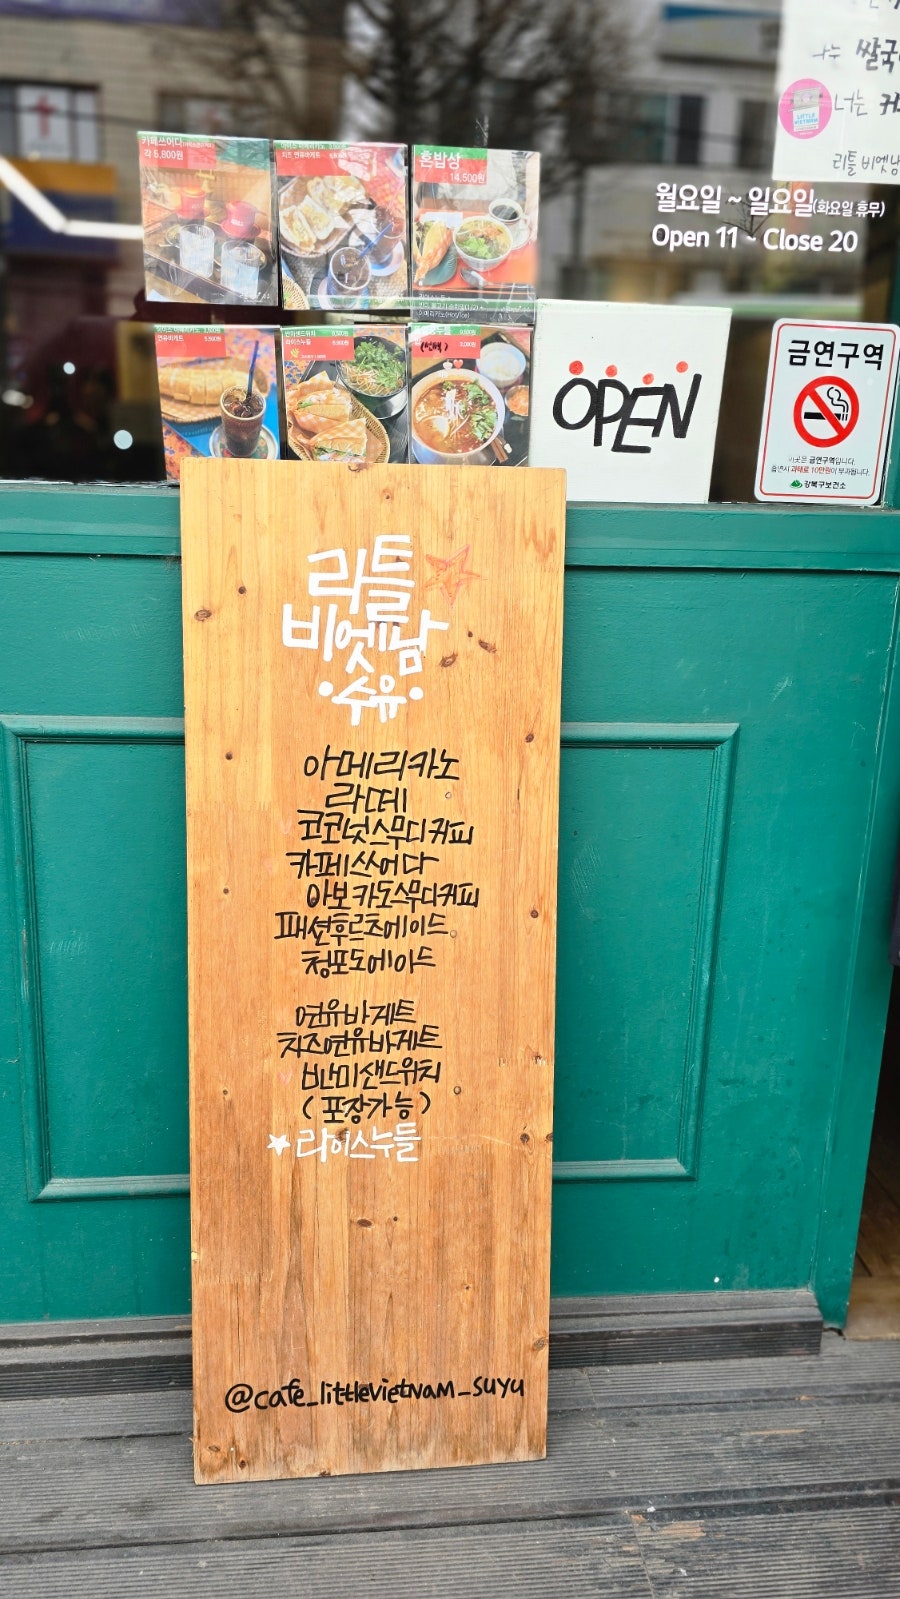 나는 쌀국
너는 커
LITTLE
VIETNAM
리틀 비엣남
월요일 ~ 일요일(화요일 휴무)
Open 11 ~ Close 20
카페쓰어다
각 5,800원
치즈 연유바게트
혼밥상
14,500원
연유바게트
반미샌드위치
라이스누들
OPEN
금연구역
이곳은 금연구역입니다.
흡연시 과태료 10만원이 부과됩니다.
강북구보건소
리틀
비엣남
·수유·
아메리카노
라떼
코코넛스무디커피
카페쓰어다
아보카도스무디커피
패션후르츠에이드
청포도에이드
연유바게트
치즈연유바게트
반미샌드위치
(포장가능)
라이스누들
@cafe_littlevietnam_suyu